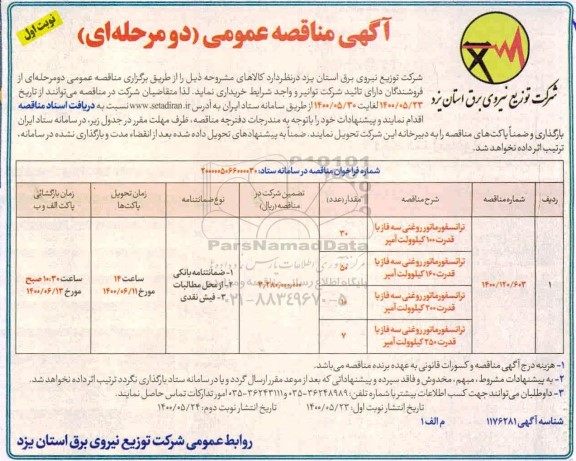 نوبت اول
آگهی مناقصه عمومی (دو مرحله‌ای)
شرکت توزیع نیروی برق استان یزد
شرکت توزیع نیروی برق استان یزد درنظردارد کالاهای مشروحه ذیل را از طریق برگزاری مناقصه عمومی دومرحله‌ای از
فروشندگان دارای تائید شرکت توانیر و واجد شرایط خریداری نماید. لذا متقاضیان شرکت در مناقصه می‌توانند از تاریخ
۱۴۰۰/۰۵/۲۳ لغایت ۱۴۰۰/۰۵/۳۰ از طریق سامانه ستاد ایران به آدرس www.setadiran.ir نسبت به دریافت اسناد مناقصه
اقدام نمایند و پیشنهادات خود را باتوجه به مندرجات دفترچه مناقصه، ظرف مهلت مقرر در جدول زیر، در سامانه ستاد ایران
بارگذاری و ضمناً پاکت‌های مناقصه را به دبیرخانه این شرکت تحویل نمایند. ضمناً به پیشنهادهای تحویل داده شده بعد از انقضاء مدت و بارگذاری نشده در سامانه،
ترتیب اثر داده نخواهد شد.
شماره فراخوان مناقصه در سامانه ستاد: ۲۰۰۰۰۰۵۰۶۶۰۰۰۰۳۰
ردیف شماره مناقصه شرح مناقصه مقدار (عدد) تضمین شرکت در مناقصه (ریال) نوع ضمانتنامه زمان تحویل پاکت‌ها زمان بازگشائی پاکت الف و ب
۱ ۱۴۰۰/۱۲۰/۶۰۳
ترانسفورماتور روغنی سه فاز با قدرت ۱۰۰ کیلوولت آمپر ۳۰
ترانسفورماتور روغنی سه فاز با قدرت ۱۶۰ کیلوولت آمپر
ترانسفورماتور روغنی سه فاز با قدرت ۲۰۰ کیلوولت آمپر
ترانسفورماتور روغنی سه فاز با قدرت ۲۵۰ کیلوولت آمپر ۷
۱- ضمانتنامه بانکی
۲- از محل مطالبات
۳- فیش نقدی
ساعت ۱۴
مورخ ۱۴۰۰/۰۶/۱۱
ساعت ۱۰:۳۰ صبح
مورخ ۱۴۰۰/۰۶/۱۳
ParsNamadData
پایگاه اطلاع رسانی مناقصه و مزایده
۰۲۱-۸۸۳۴۹۶۷۰-۵
۱- هزینه درج آگهی مناقصه و کسورات قانونی به عهده برنده مناقصه می‌باشد.
۲- به پیشنهادات مشروط، مبهم، مخدوش و فاقد سپرده و پیشنهاداتی که بعد از موعد مقرر ارسال گردد و یا در سامانه ستاد بارگذاری نگردد ترتیب اثر داده نخواهد شد.
۳- داوطلبان می‌توانند جهت کسب اطلاعات بیشتر با شماره تلفن: ۳۶۲۴۸۹۸۹-۰۳۵ و ۳۶۲۴۳۱۱۱-۰۳۵ امور تدارکات تماس حاصل نمایند.
تاریخ انتشار نوبت اول: ۱۴۰۰/۰۵/۲۳ تاریخ انتشار نوبت دوم: ۱۴۰۰/۰۵/۲۴
شناسه آگهی ۱۱۷۶۲۸۱ م الف ۱
روابط عمومی شرکت توزیع نیروی برق استان یزد